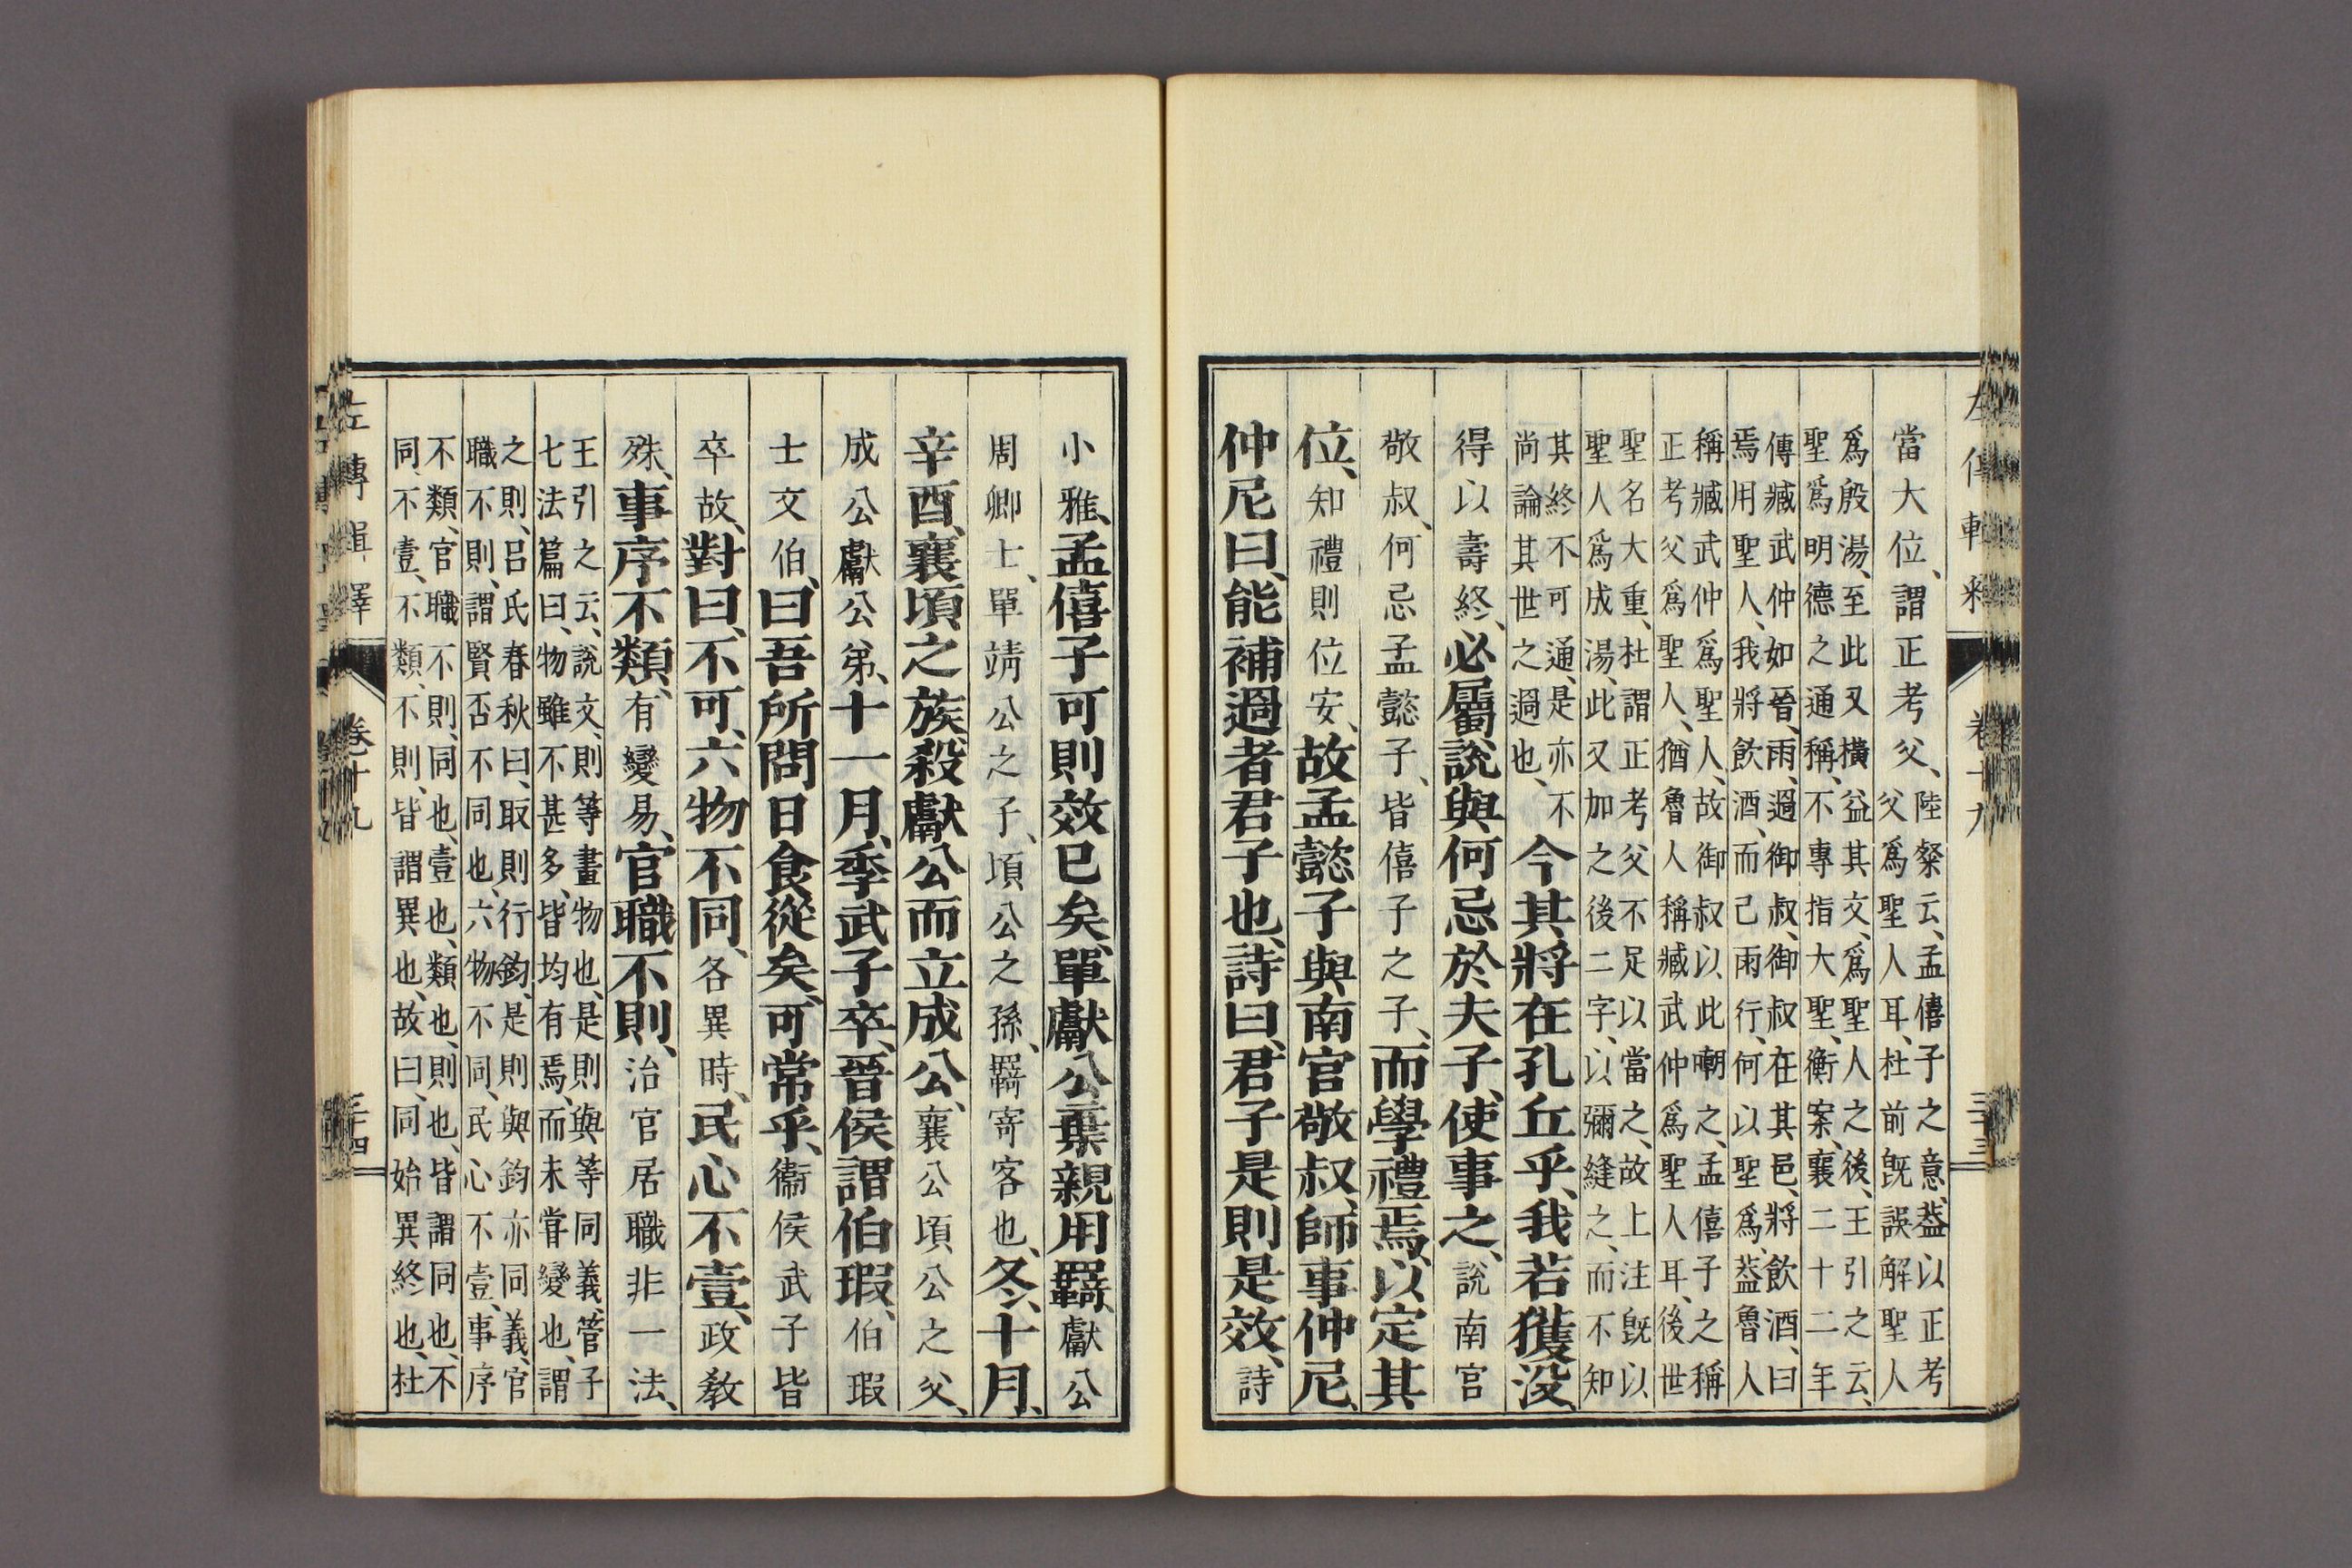 左傳輯釋 卷十九 三十三
當大位、謂正考父、
陸粲云、孟僖子之意、葢以正考
父爲聖人耳、杜前旣誤解聖人
爲殷湯、至此又橫益其文、爲聖人之後、王引之云、
聖爲明德之通稱、不專指大聖、衡案、襄二十二年
傳臧武仲如晉、雨、過御叔、御叔在其邑、將飲酒、曰
焉用聖人、我將飲酒、而己雨行、何以聖爲、葢魯人
稱臧武仲爲聖人、故御叔以此嘲之、孟僖子之稱
正考父爲聖人、猶魯人稱臧武仲爲聖人耳、後世
聖名大重、杜謂正考父不足以當之、故上注旣以
聖人爲成湯、此又加之後二字、以彌縫之、而不知
其終不可通、是亦不
尚論其世之過也、
今其將在孔丘乎、我若獲没、
得以壽終、必屬說與何忌於夫子、使事之、說南宮
敬叔、何忌孟懿子、皆僖子之子、而學禮焉、以定其
位、知禮則位安、故孟懿子與南宮敬叔、師事仲尼、
仲尼曰、能補過者君子也、詩曰、君子是則是效、詩
小雅、孟僖子可則效已矣、單獻公棄親用羈、獻公
周卿士、單靖公之子、頃公之孫、羈寄客也、冬、十月、
辛酉、襄頃之族、殺獻公而立成公、襄公頃公之父、
成公獻公弟、十一月、季武子卒、晉侯謂伯瑕、伯瑕
士文伯、曰吾所問日食從矣、可常乎、衞侯武子皆
卒故、對曰、不可、六物不同、各異時、民心不壹、政教
殊、事序不類、有變易、官職不則、治官居職非一法、
王引之云、說文、則等畫物也、是則與等同義、管子
七法篇曰、物雖不甚多、皆均有焉、而未甞變也、謂
之則、呂氏春秋曰、取則行鈞、是則與鈞亦同義、官
職不則、謂賢否不同也、六物不同、民心不壹、事序
不類、官職不則、同也、壹也、類也、則也、皆謂同也、不
同、不壹、不類、不則、皆謂異也、故曰、同始異終也、杜
左傳輯釋 卷十九 三十四